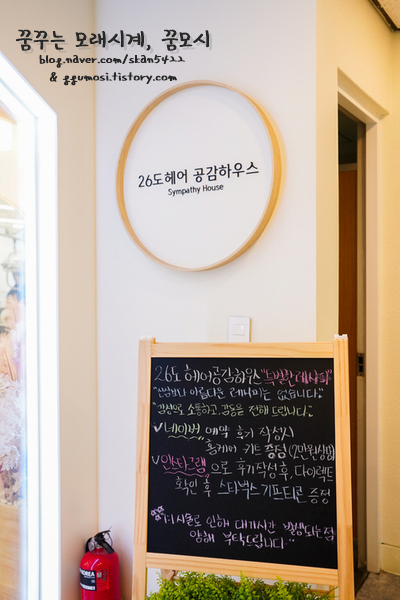 꿈꾸는 모래시계, 꿈모시
blog.naver.com/skan5422
& ggumosi.tistory.com
26도헤어 공감하우스
Sympathy House
26도 헤어공감하우스 "특별한 레시피"
아름다운 레시피는 없습니다."
"감성으로 소통하고, 감동을 전해 드립니다."
✓네이버 예약 후기 작성시
홈케어 키트 증정 (2만원상당)
✓인스타그램으로 후기작성후, 다이렉트
확인 후 스타벅스 기프티콘 증정
1:1시술로 인해 대기시간 발생되는점
양해 부탁드립니다.